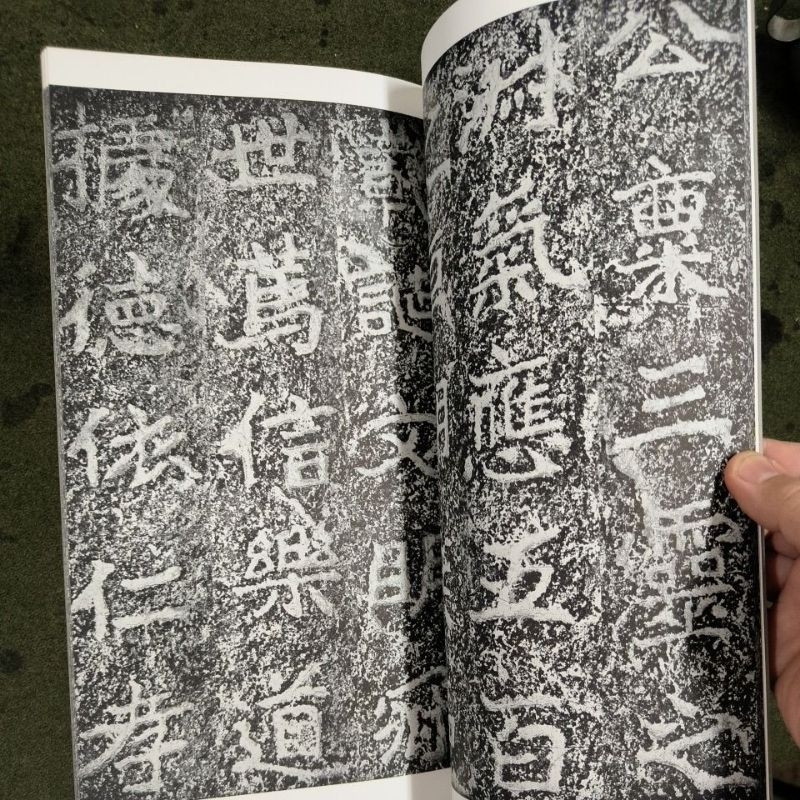 公稟三靈之
淑氣應五百
載誕文明冠
世篤信樂道
據德依仁孝